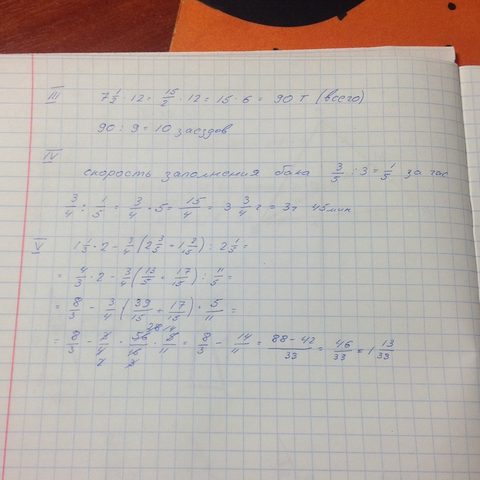 III 7 1/2 · 12 = 15/2 · 12 = 15 · 6 = 90 т (всего)
90 : 9 = 10 заездов
IV скорость заполнения бака 3/5 : 3 = 1/5 за час
3/4 : 1/5 = 3/4 · 5 = 15/4 = 3 3/4 г = 3ч 45мин
V 1 1/3 · 2 - 3/4 (2 3/5 + 1 2/15) : 2 1/5 =
= 4/3 · 2 - 3/4 (13/5 + 17/15) : 11/5 =
= 8/3 - 3/4 (39/15 + 17/15) · 5/11 =
= 8/3 - 3/4 · 56/15 · 5/11 = 8/3 - 14/11 = 88-42/33 = 46/33 = 1 13/33